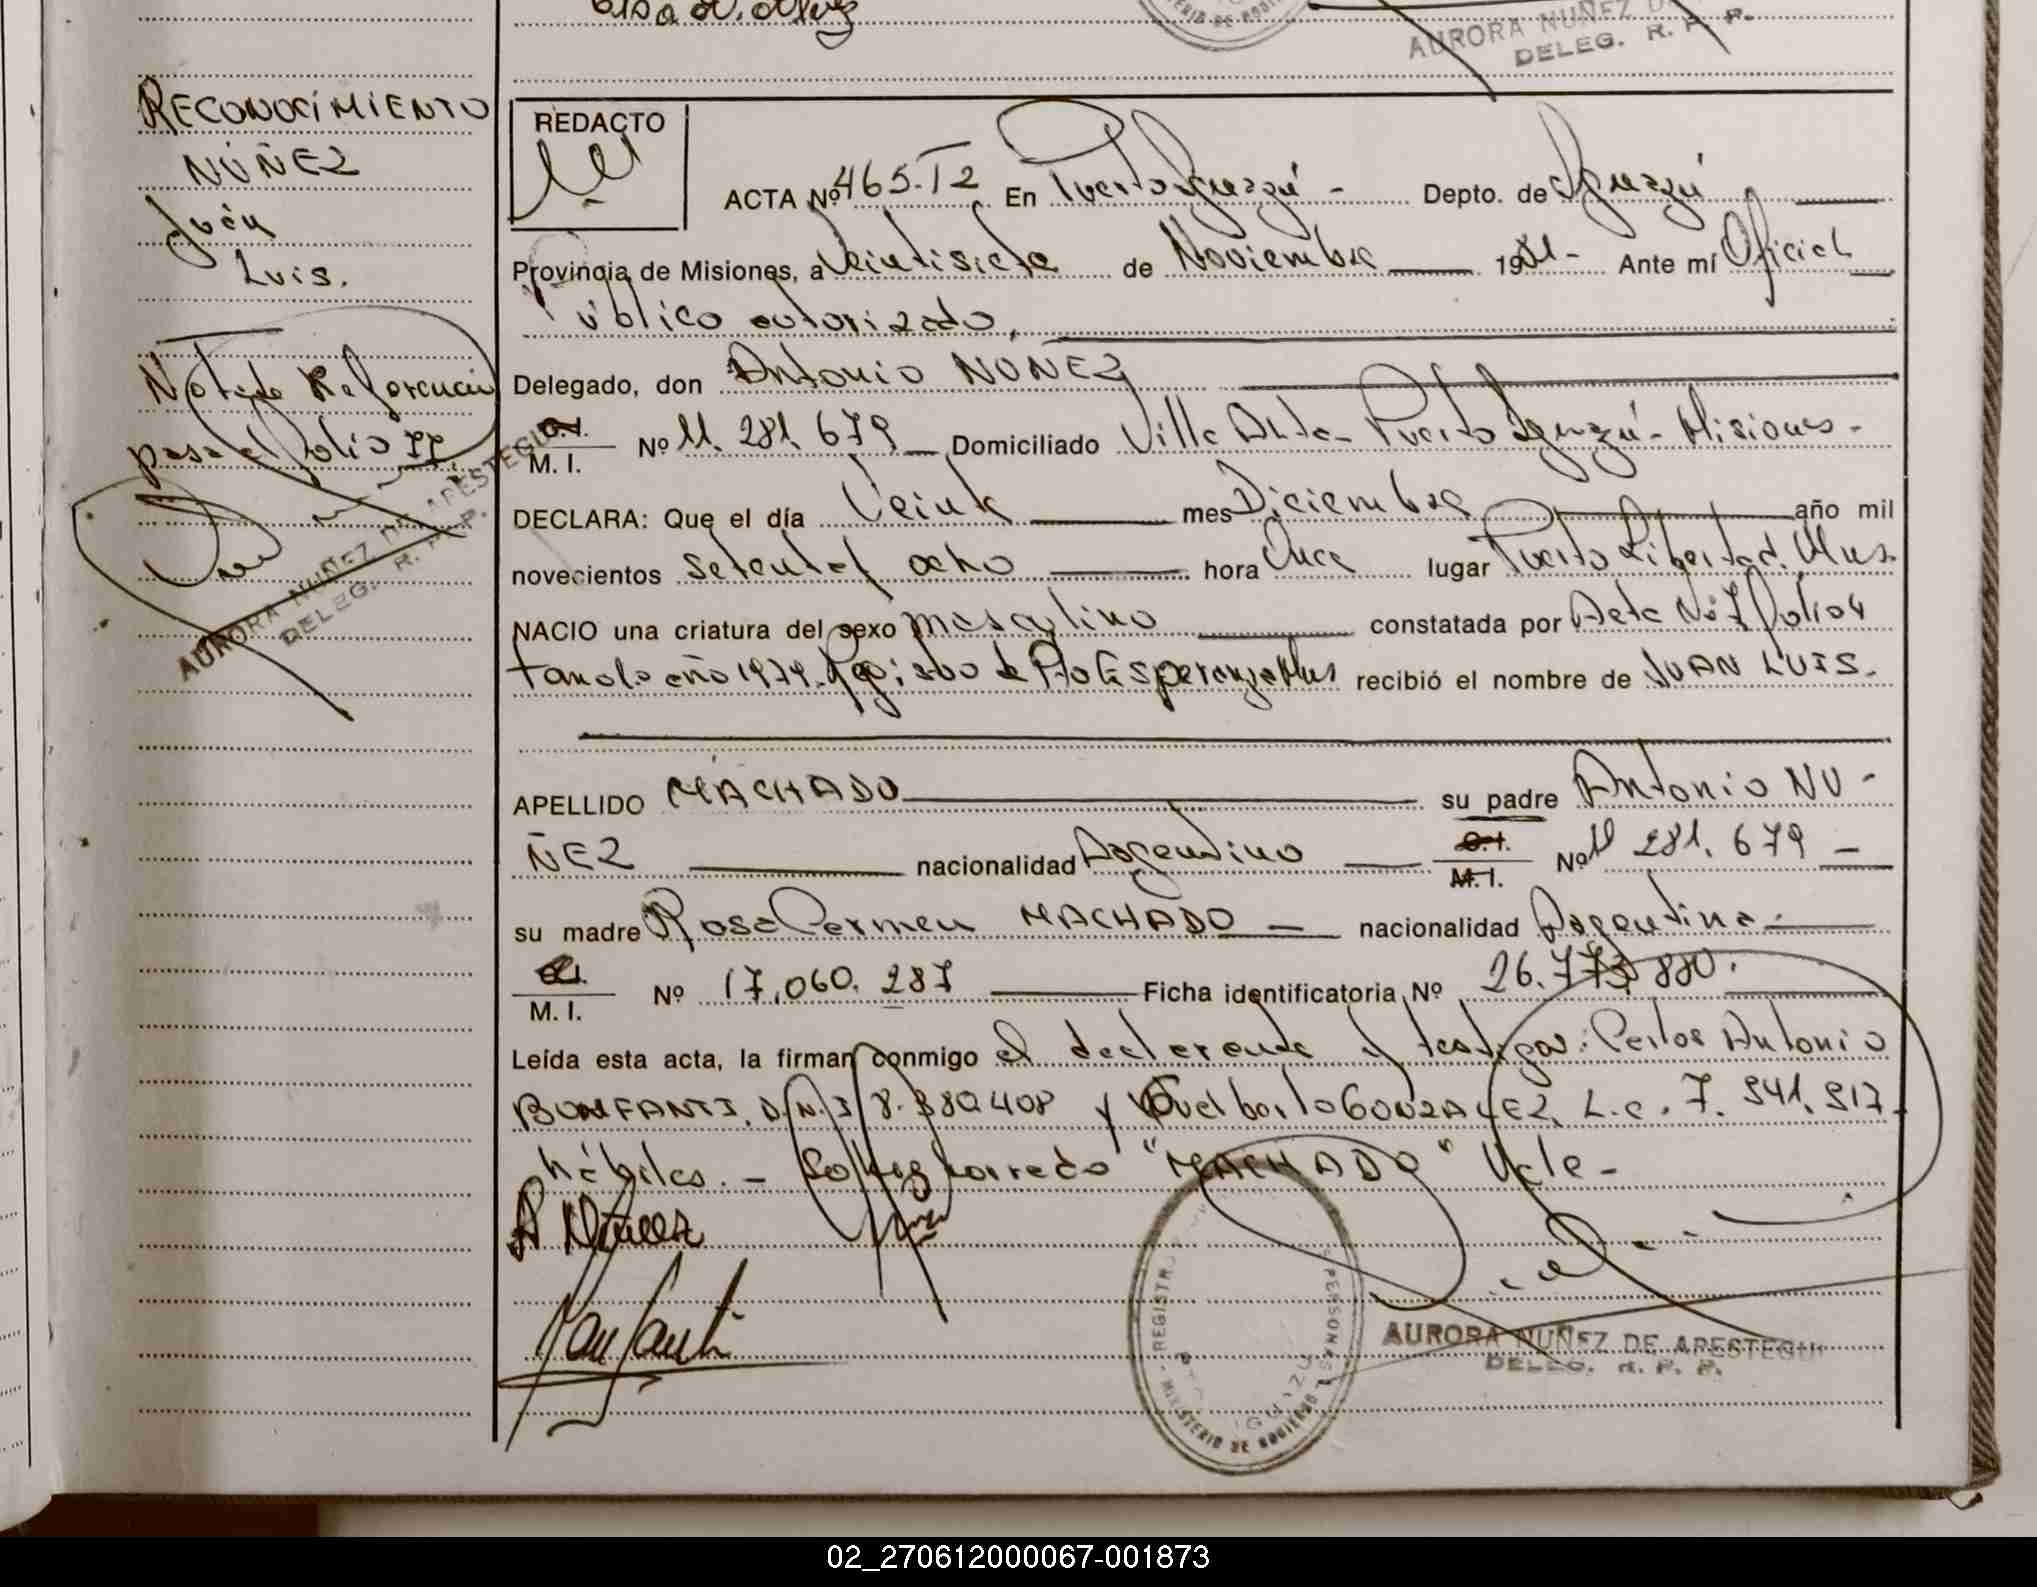 MINISTERIO DE GOBIERNO
AURORA NUÑEZ D
DELEG. R. P. P.
RECONOCIMIENTO
NÚÑEZ
Juan
Luis.
Nota de Referencia
pasa al folio 77.
AURORA NUÑEZ DE APESTEGUI
DELEG. R. P. P.
REDACTO
ACTA Nº 465-T2 En Puerto Iguazú - Depto. de Iguazú
Provincia de Misiones, a Veintisiete de Noviembre 1981- Ante mí Oficial
Público autorizado,
Delegado, don Antonio NUÑEZ
C.I.
M. I. Nº 11.281.679 Domiciliado Villa Alta - Puerto Iguazú - Misiones -
DECLARA: Que el día Veinte mes Diciembre año mil
novecientos setenta y ocho hora Once lugar Puerto Libertad. Mns.
NACIO una criatura del sexo masculino constatada por Acta Nº 7 folio 4
tomo 1º año 1979. Registro de Pto Esperanza Mns recibió el nombre de JUAN LUIS.
APELLIDO MACHADO su padre Antonio NU-
ÑEZ nacionalidad Argentino C.I.
M.I. Nº 11 281.679 -
su madre Rosa Carmen MACHADO - nacionalidad Argentina -
C.I.
M. I. Nº 17.060.287 Ficha identificatoria Nº 26.773.880.
Leída esta acta, la firman conmigo el declarante y testigos: Carlos Antonio
BONFANTI, D.N.I 8.380.408 y GONZALEZ, L.e. 7.541.517.
hábiles. - Sobreborrado "MACHADO" Vale -
A Núñez
Bonfanti
REGISTR PERSONAS
MINISTERIO DE GOBIERNO
IGUAZU
AURORA NUÑEZ DE APESTEGUI
DELEG. R. P. P.
02_270612000067-001873